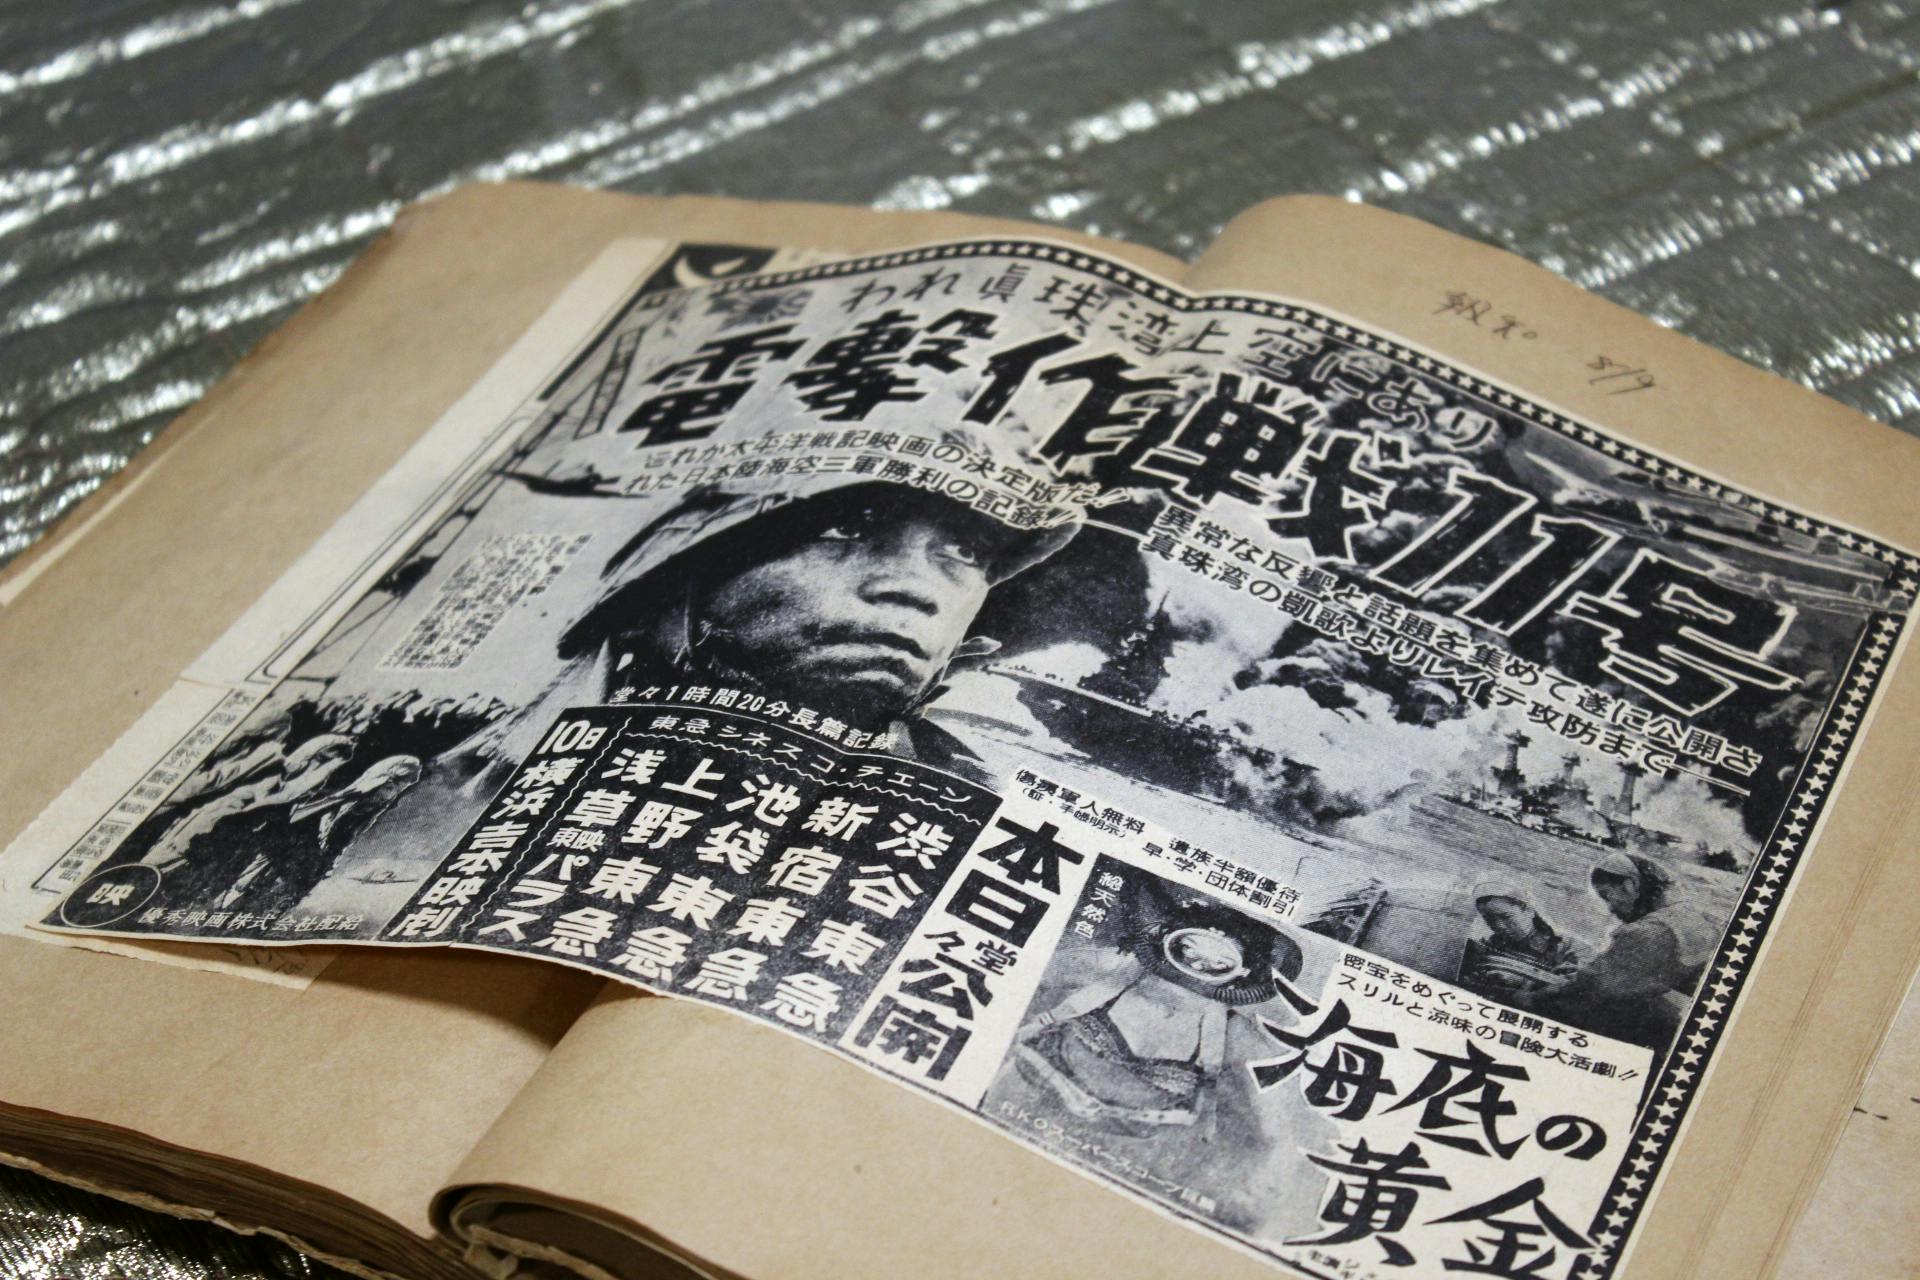 報知 8/9
われ眞珠湾上空にあり
電撃作戦11号
これが太平洋戦記映画の決定版だ!!
異常な反響と話題を集めて遂に公開さ
れた日本陸海空三軍勝利の記録!!
真珠湾の凱歌よりレイテ攻防まで──
堂々1時間20分長篇記録
東急シネスコ・チエーン
渋谷東急
新宿東急
池袋東急
上野東急
浅草東映パラス
10日横浜吉本映劇
傷痍軍人無料
(証・手帳明示)
遺族半額優待
早・学・団体割引
本日堂々公開
総天然色
密宝をめぐって展開する
スリルと涼味の冒険大活劇!!
海底の
黄金
RKOスーパースコープ
映
優秀映画株式会社配給